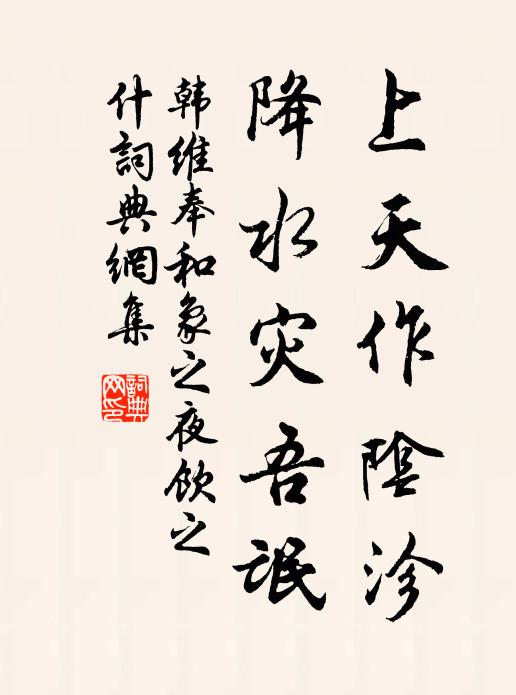 上天作陰沴
降水灾吾氓
韩維奉和象之夜飲之
什詞典網集
詞典网印